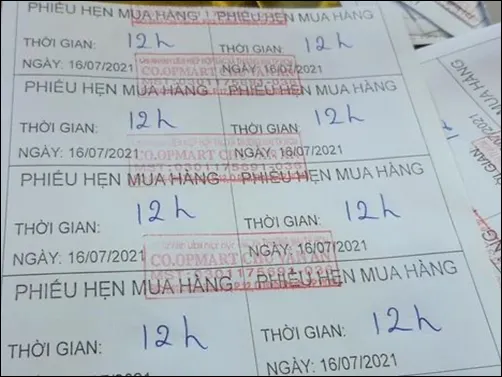 PHIẾU HẸN MUA HÀNG PHIẾU HẸN MUA HÀNG
THỜI GIAN: 12h THỜI GIAN: 12h
NGÀY: 16/07/2021 NGÀY: 16/07/2021
CO.OPMART
PHIẾU HẸN MUA HÀNG PHIẾU HẸN MUA HÀNG
THỜI GIAN: 12h THỜI GIAN: 12h
NGÀY: 16/07/2021 NGÀY: 16/07/2021
CO.OPMART
PHIẾU HẸN MUA HÀNG PHIẾU HẸN MUA HÀNG
THỜI GIAN: 12h THỜI GIAN: 12h
NGÀY: 16/07/2021 NGÀY: 16/07/2021
CO.OPMART CHU VĂN AN
MST:0301175691-036
PHIẾU HẸN MUA HÀNG PHIẾU HẸN MUA HÀNG
THỜI GIAN: 12h THỜI GIAN: 12h
16/07/2021 NGÀY: 16/07/2021
MUA HÀNG